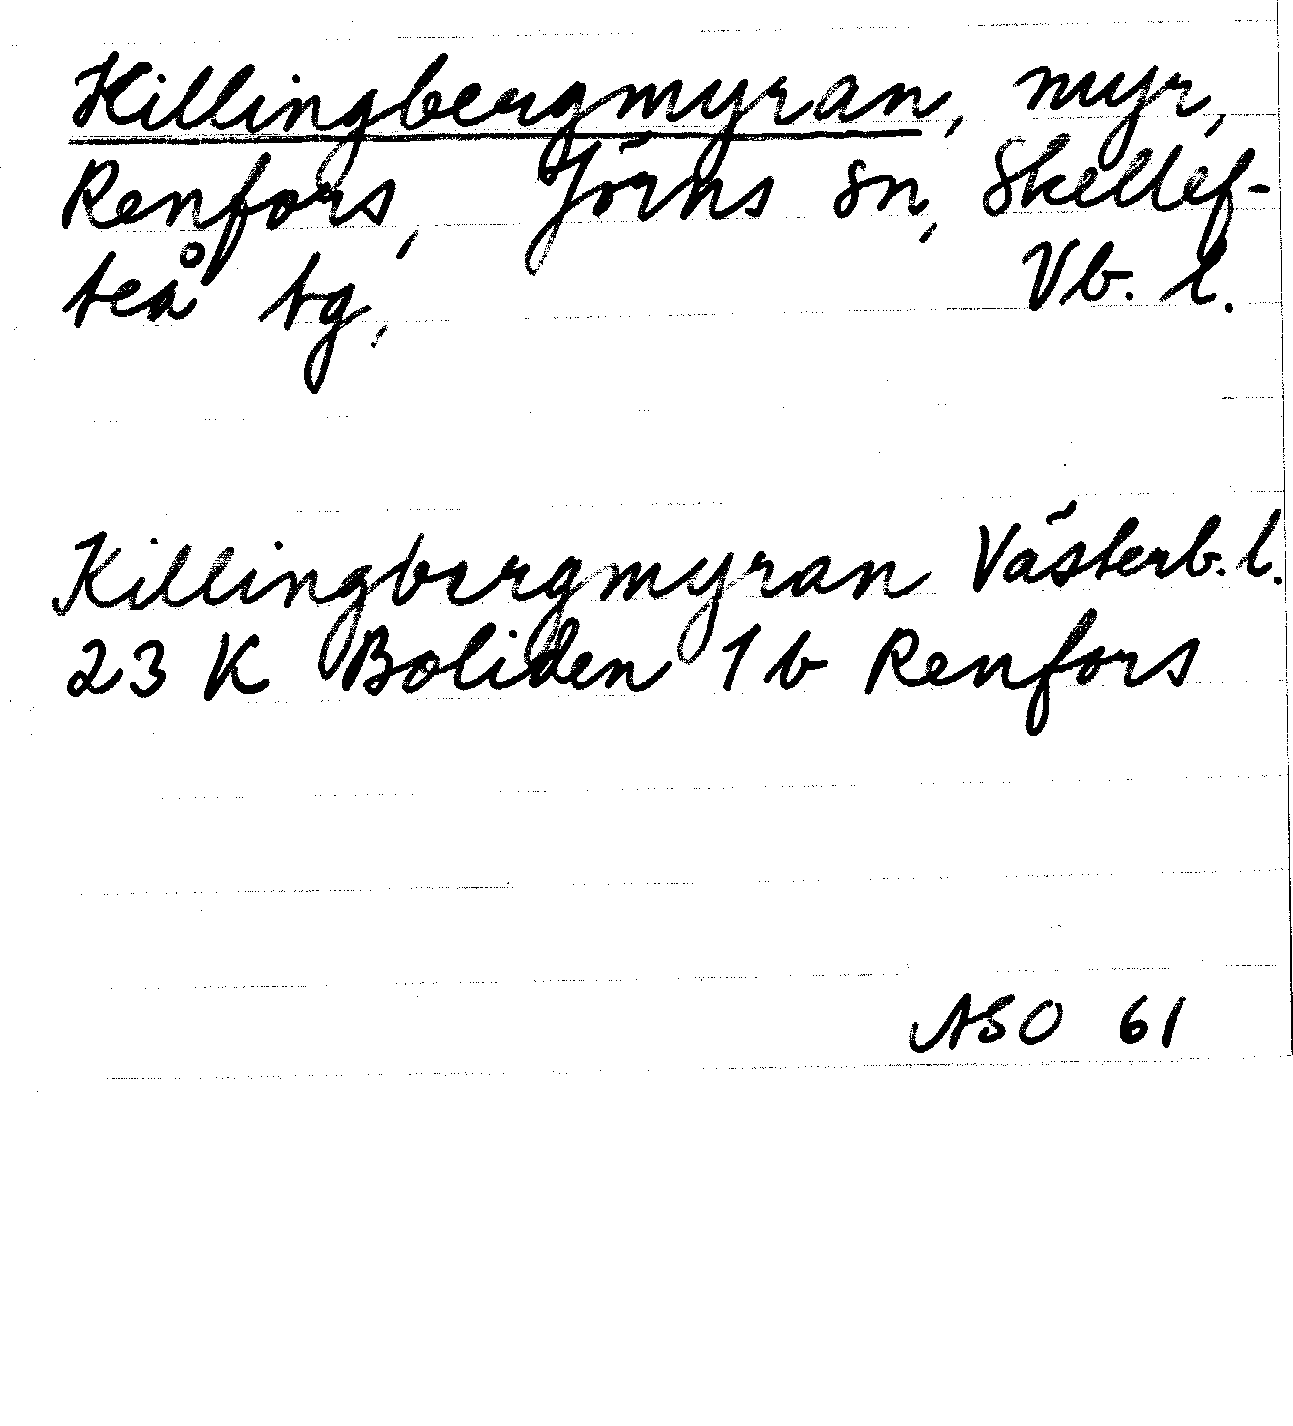 Killingbergmyran, myr,
Renfors, Jörns sn, Skellef-
teå tg, Vb. l.
Killingbergmyran Västerb. l.
23 K Boliden 1 b Renfors
ASO 61